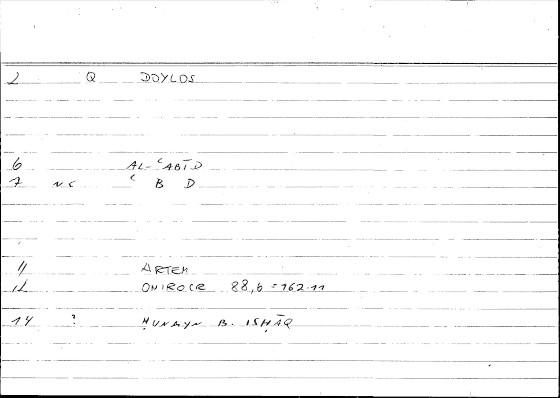 2 Q DOYLOS
6 AL-ʿABĪD
7 NC ʿ B D
11 ARTEM
12 ONIROCR 88,6 = 162.11
14 ? ḤUNAYN B. ISḤĀQ